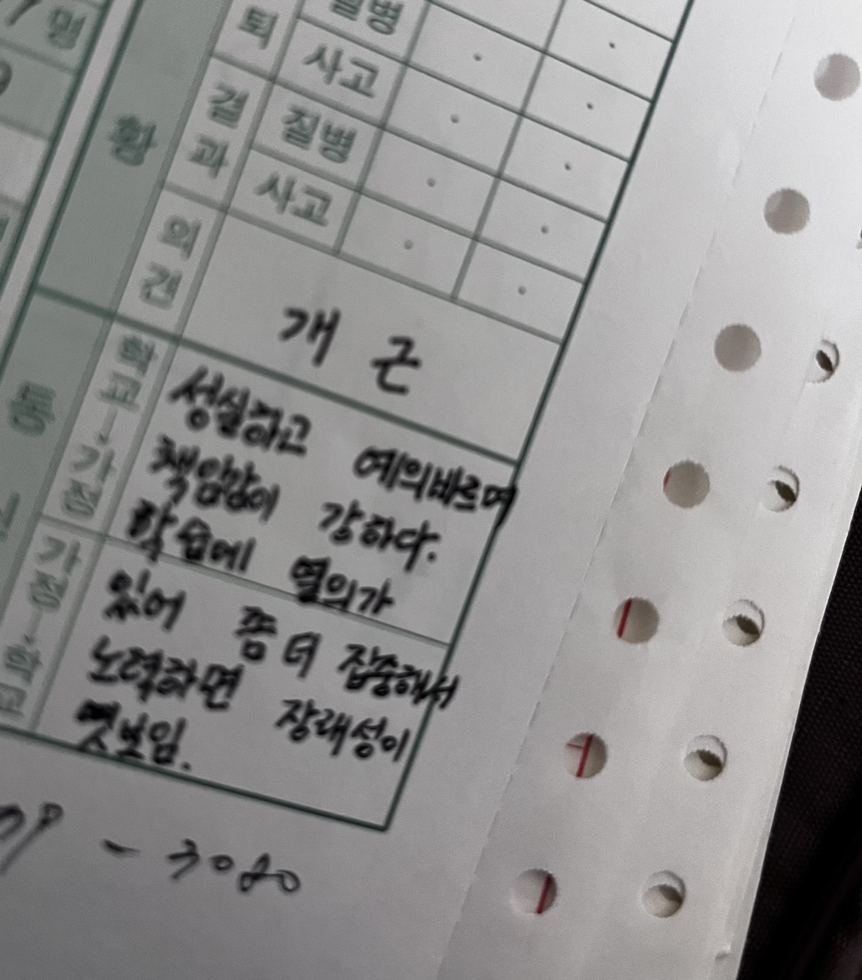 명
황
퇴
질병
사고
결과
질병
사고
의견
개 근
통
학교→가정
성실하고 예의바르며
책임감이 강하다.
학습에 열의가
가정→학교
있어 좀 더 집중해서
노력하면 장래성이
엿보임.
- 3080